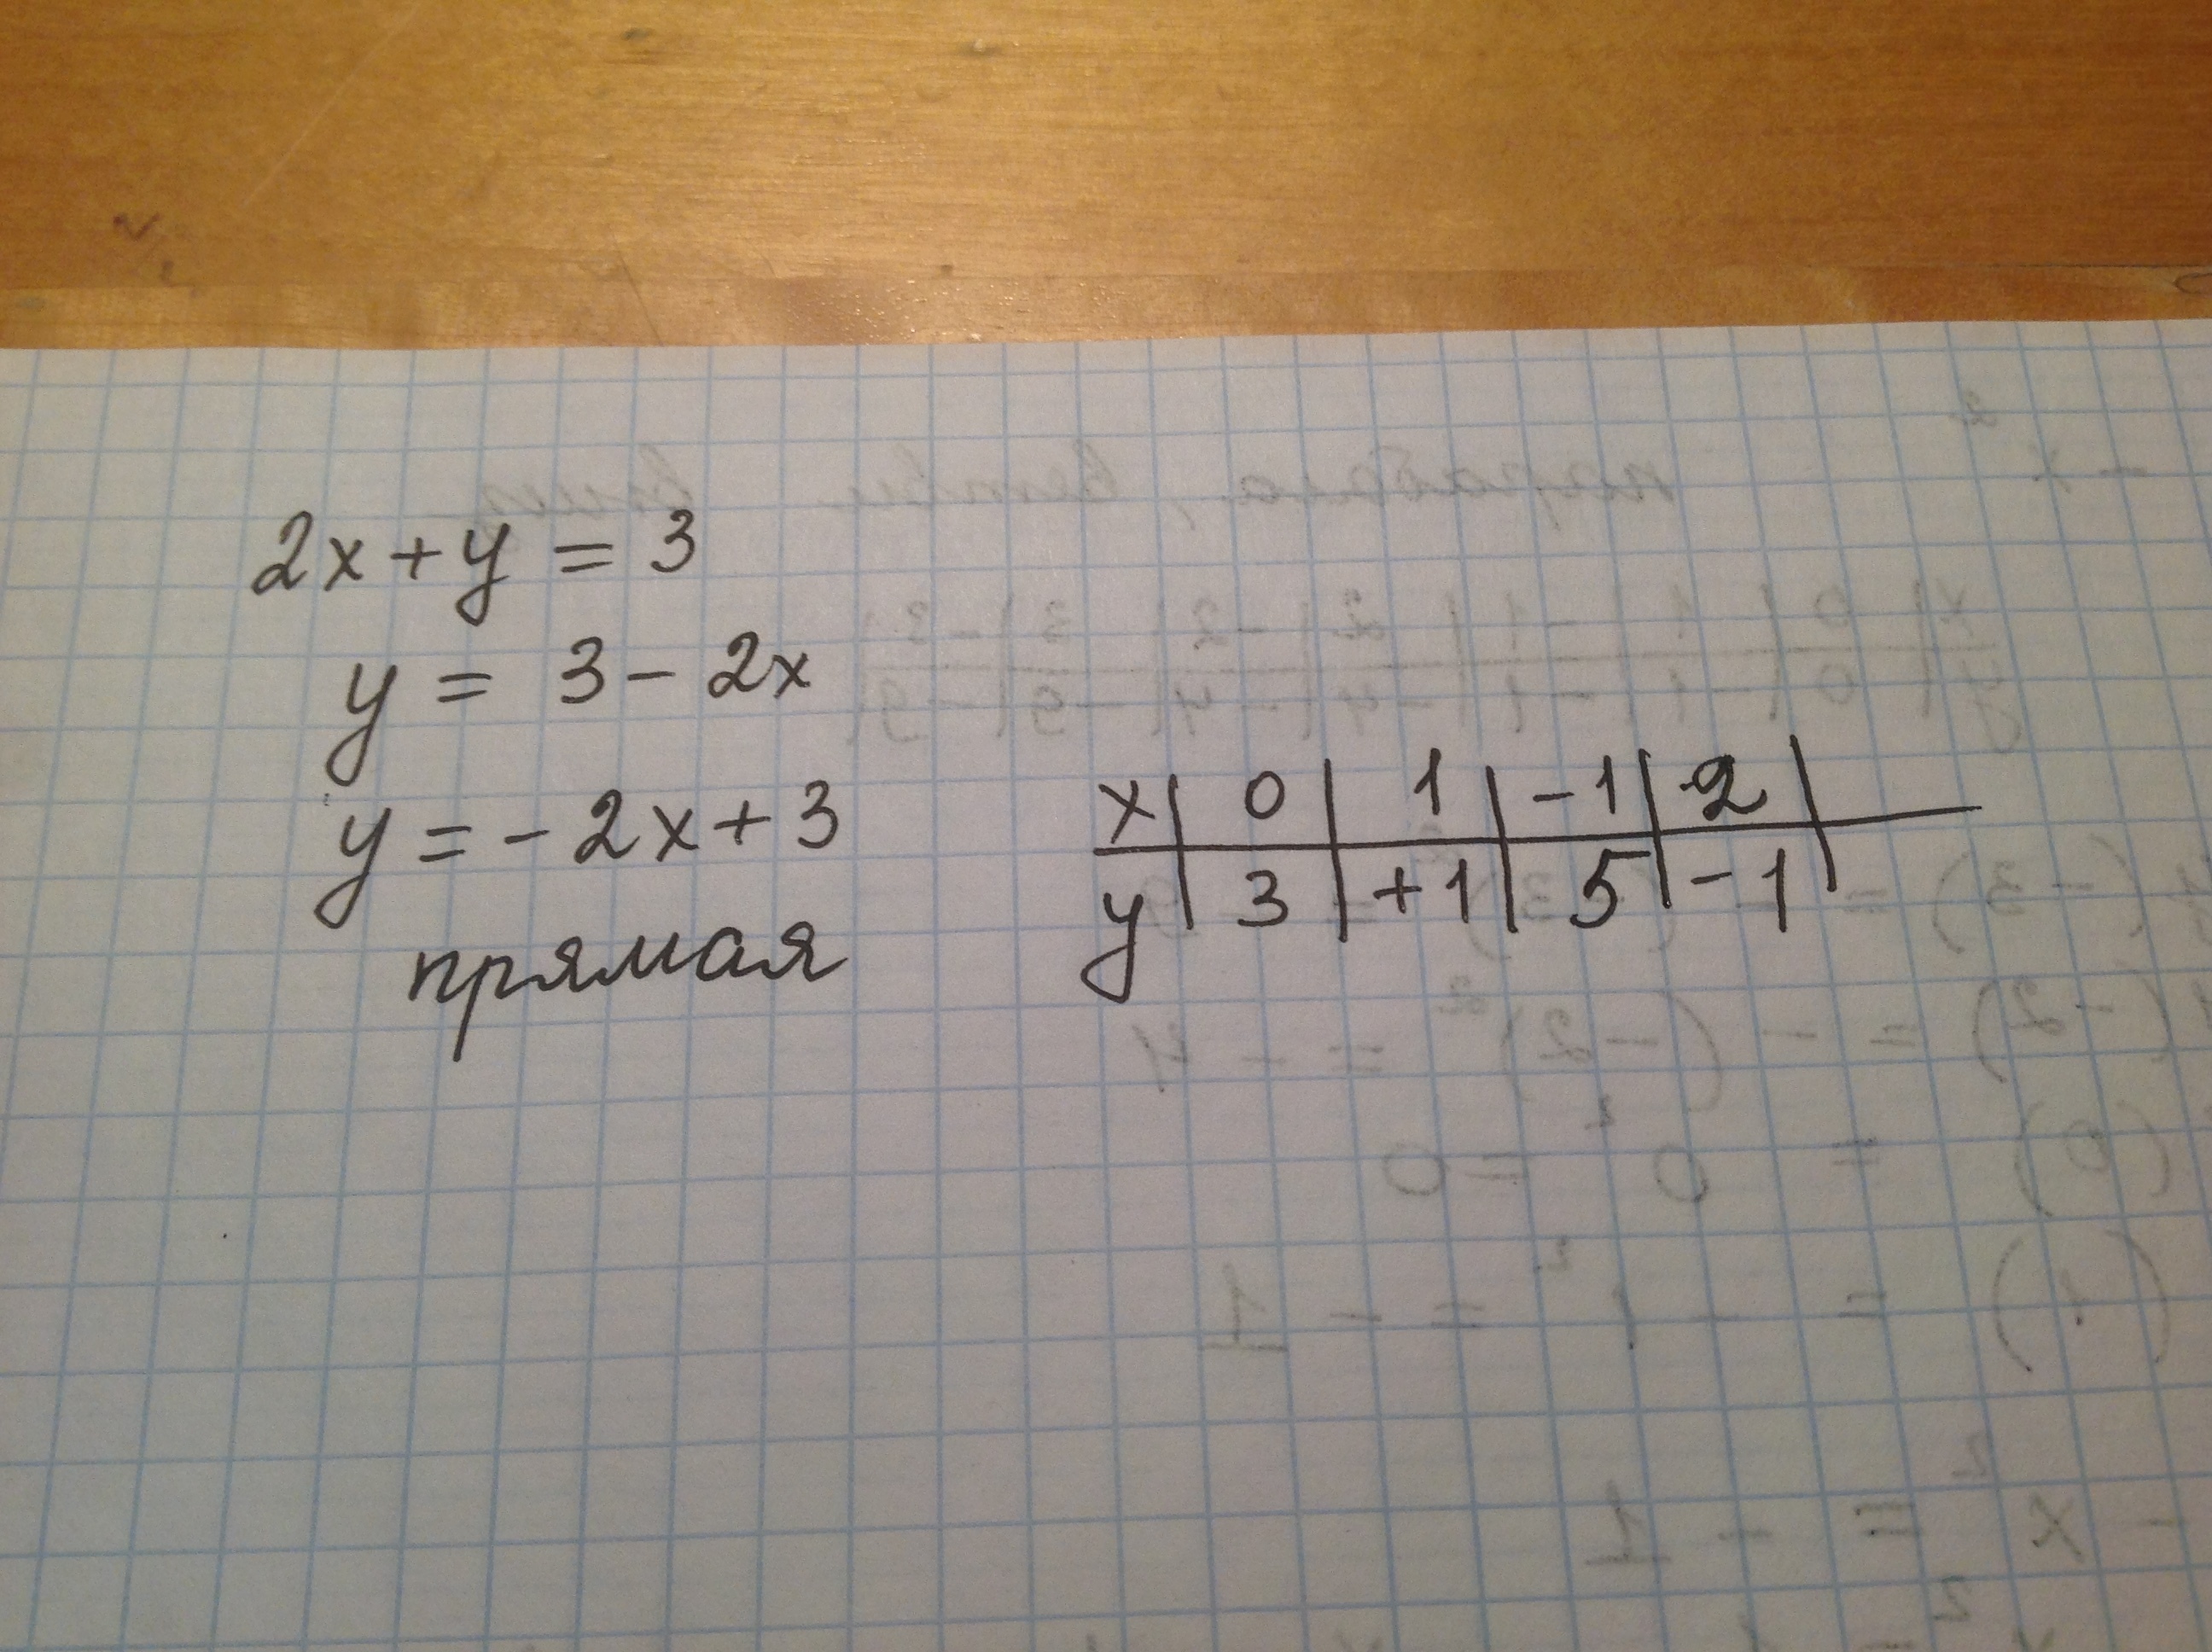 2x+y = 3
y = 3 - 2x
y = - 2x + 3
прямая
x | 0 | 1 | -1 | 2 |
y | 3 | +1 | 5 | -1 |